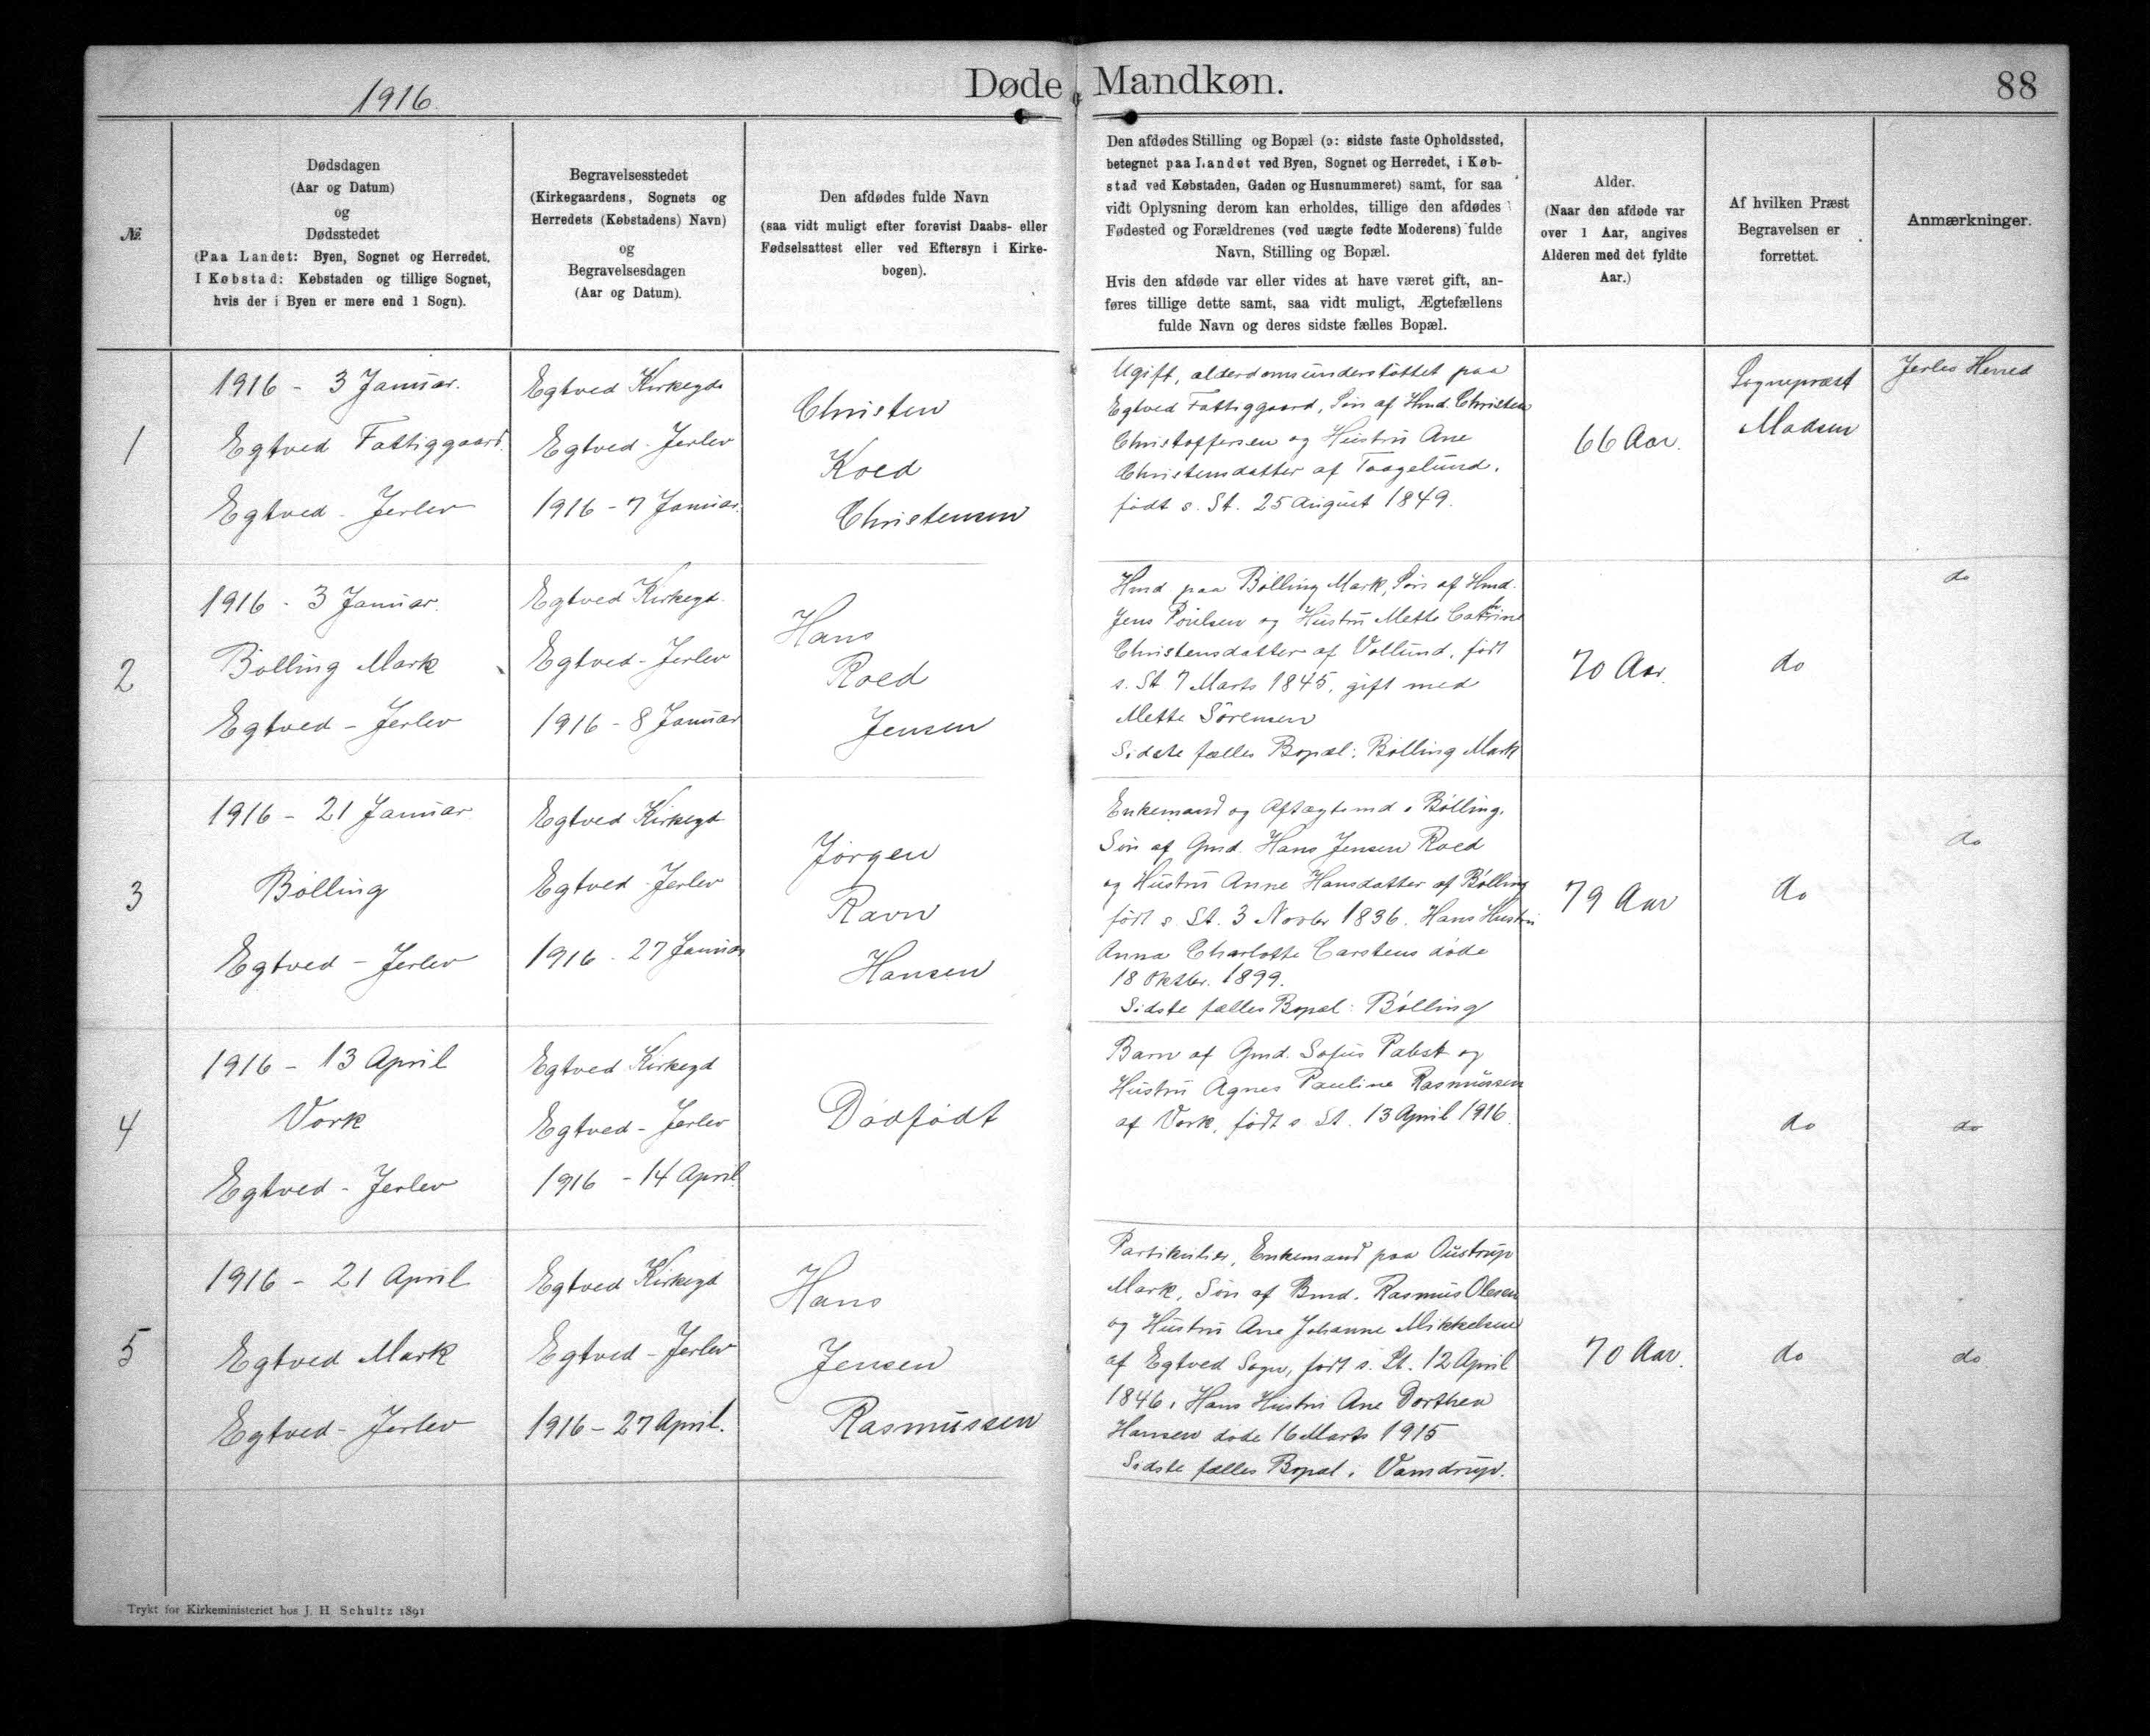 1916.
Døde Mandkøn.
88
№.
Dødsdagen
(Aar og Datum)
og
Dødsstedet
(Paa Landet: Byen, Sognet og Herredet.
I Købstad: Købstaden og tillige Sognet,
hvis der i Byen er mere end 1 Sogn).
Begravelsesstedet
(Kirkegaardens, Sognets og
Herredets (Købstadens) Navn)
og
Begravelsesdagen
(Aar og Datum).
Den afdødes fulde Navn
(saa vidt muligt efter forevist Daabs- eller
Fødselsattest eller ved Eftersyn i Kirke-
bogen).
Den afdødes Stilling og Bopæl (ɔ: sidste faste Opholdssted,
betegnet paa Landet ved Byen, Sognet og Herredet, i Køb-
stad ved Købstaden, Gaden og Husnummeret) samt, for saa
vidt Oplysning derom kan erholdes, tillige den afdødes
Fødested og Forældrenes (ved uægte fødte Moderens) fulde
Navn, Stilling og Bopæl.
Hvis den afdøde var eller vides at have været gift, an-
føres tillige dette samt, saa vidt muligt, Ægtefællens
fulde Navn og deres sidste fælles Bopæl.
Alder.
(Naar den afdøde var
over 1 Aar, angives
Alderen med det fyldte
Aar.)
Af hvilken Præst
Begravelsen er
forrettet.
Anmærkninger.
1
1916 - 3 Januar.
Egtved Fattiggaard.
Egtved - Jerlev
Egtved Kirkegd.
Egtved - Jerlev
1916 - 7 Januar.
Christen
Koed
Christensen
Ugift, alderdomsunderstøttet paa
Egtved Fattiggaard, Søn af Hmd. Christen
Christoffersen og Hustru Ane
Christensdatter af Taagelund.
født s. St. 25 August 1849.
66 Aar.
Sognepræst
Madsen
Jerlev Herred
2
1916 - 3 Januar.
Bølling Mark
Egtved - Jerlev
Egtved Kirkegd.
Egtved - Jerlev
1916 - 8 Januar
Hans
Roed
Jensen
Hmd paa Bølling Mark, Søn af Hmd.
Jens Poulsen og Hustru Mette Cathrine
Christensdatter af Vollund, født
s. St 7 Marts 1845, gift med
Mette Sørensen
Sidste fælles Bopæl: Bølling Mark
70 Aar.
do
do
3
1916 - 21 Januar
Bølling
Egtved - Jerlev
Egtved Kirkegd
Egtved - Jerlev
1916 - 27 Januar
Jørgen
Ravn
Hansen
Enkemand og Aftægtsmd i Bølling.
Søn af Gmd. Hans Jensen Roed
og Hustru Anne Hansdatter af Bølling
født s. St. 3 Novbr 1836. Hans Hustru
Anna Charlotte Carstens døde
18 Oktbr. 1899.
Sidste fælles Bopæl: Bølling
79 Aar
do
do
4
1916 - 13 April
Vork
Egtved - Jerlev
Egtved Kirkegd
Egtved - Jerlev
1916 - 14 April.
Dødfødt
Barn af Gmd. Sofus Pabst og
Hustru Agnes Pauline Rasmussen
af Vork, født s. St. 13 April 1916.
do
do
5
1916 - 21 April
Egtved Mark
Egtved - Jerlev
Egtved Kirkegd
Egtved - Jerlev
1916 - 27 April.
Hans
Jensen
Rasmussen
Partikulier, Enkemand paa Oustrup
Mark, Søn af Bmd. Rasmus Olesen
og Hustru Ane Johanne Mikkelsen
af Egtved Sogn, født s. St. 12 April
1846. Hans Hustru Ane Dorthea
Hansen døde 16 Marts 1915
Sidste fælles Bopæl i Vamdrup.
70 Aar.
do
do
Trykt for Kirkeministeriet hos J. H. Schultz 1891